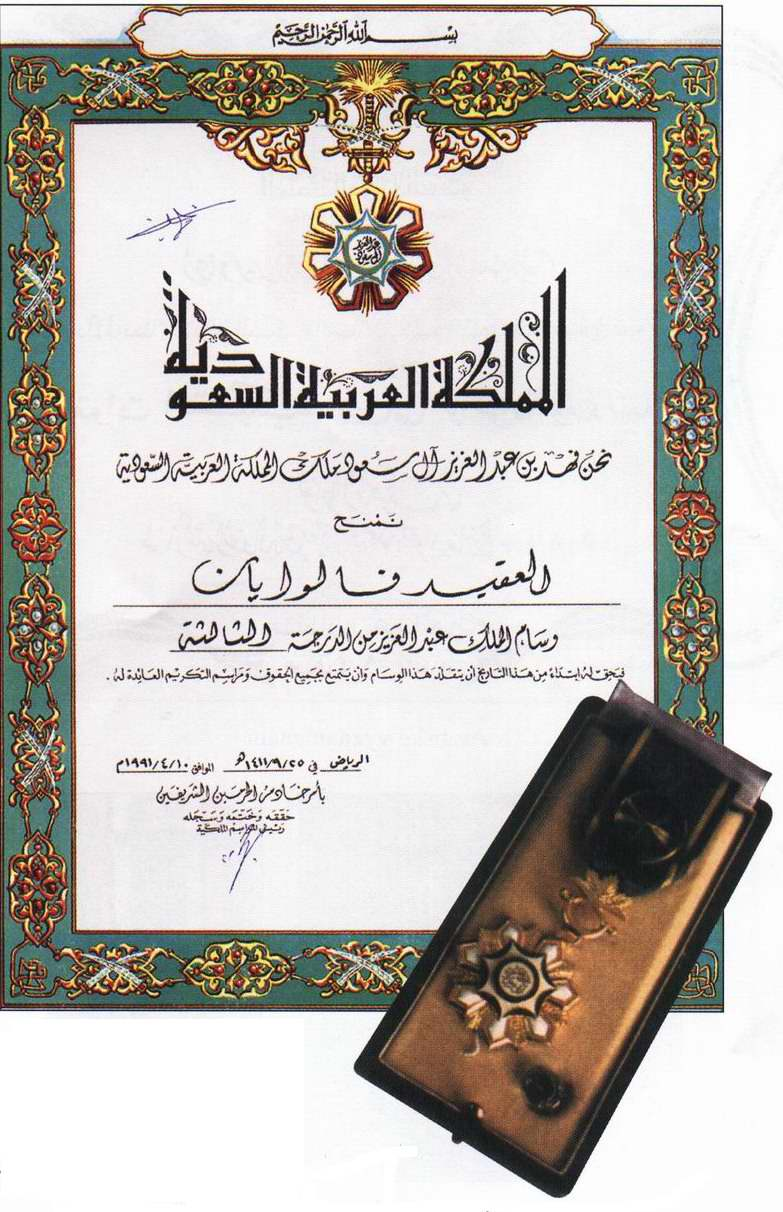 بسم الله الرحمن الرحيم
المملكة العربية السعودية
نحن فهد بن عبد العزيز آل سعود ملك المملكة العربية السعودية
نمنح
العقيد فالوايان
وسام الملك عبد العزيز من الدرجة الثالثة
فيحق له ابتداء من هذا التاريخ أن يتقلد هذا الوسام وأن يتمتع بجميع الحقوق ومراسم التكريم العائدة له .
الرياض في ١٤١١/٩/٢٥هـ الموافق ١٩٩١/٤/١٠م
بأمر خادم الحرمين الشريفين
حققه وختمه وسجله
رئيس المراسم الملكية